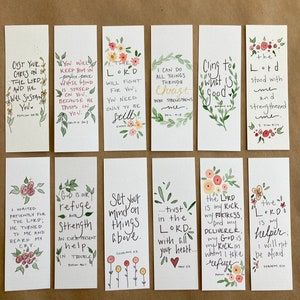 CAST YOUR
CARES ON
THE LORD
AND HE
WILL SUSTAIN
YOU.
YOU WILL
KEEP HIM IN
perfect peace
WHOSE MIND
IS STAYED
ON YOU
BECAUSE HE
TRUSTS IN
YOU
the
LORD
WILL FIGHT
FOR YOU,
YOU NEED
ONLY TO BE
still
I CAN DO
ALL THINGS
THROUGH
Christ
WHO
STRENGTHENS
ME
Cling to
what is
good
the
LORD
stood with
me
and
strengthened
me
I WAITED
PATIENTLY FOR
THE LORD,
HE TURNED
TO ME AND
HEARD MY
GOD is our
refuge
and
Strength
AN EVER PRESENT
help
IN
Set your
mind on
things
above
trust in
the
LORD
with all
your
heart.
the LORD
is MY ROCK,
MY FORTRESS,
AND MY
DELIVERER,
MY GOD is
MY ROCK, in
whom I take
refuge
the LORD
is
my
helper
I will not
be afraid